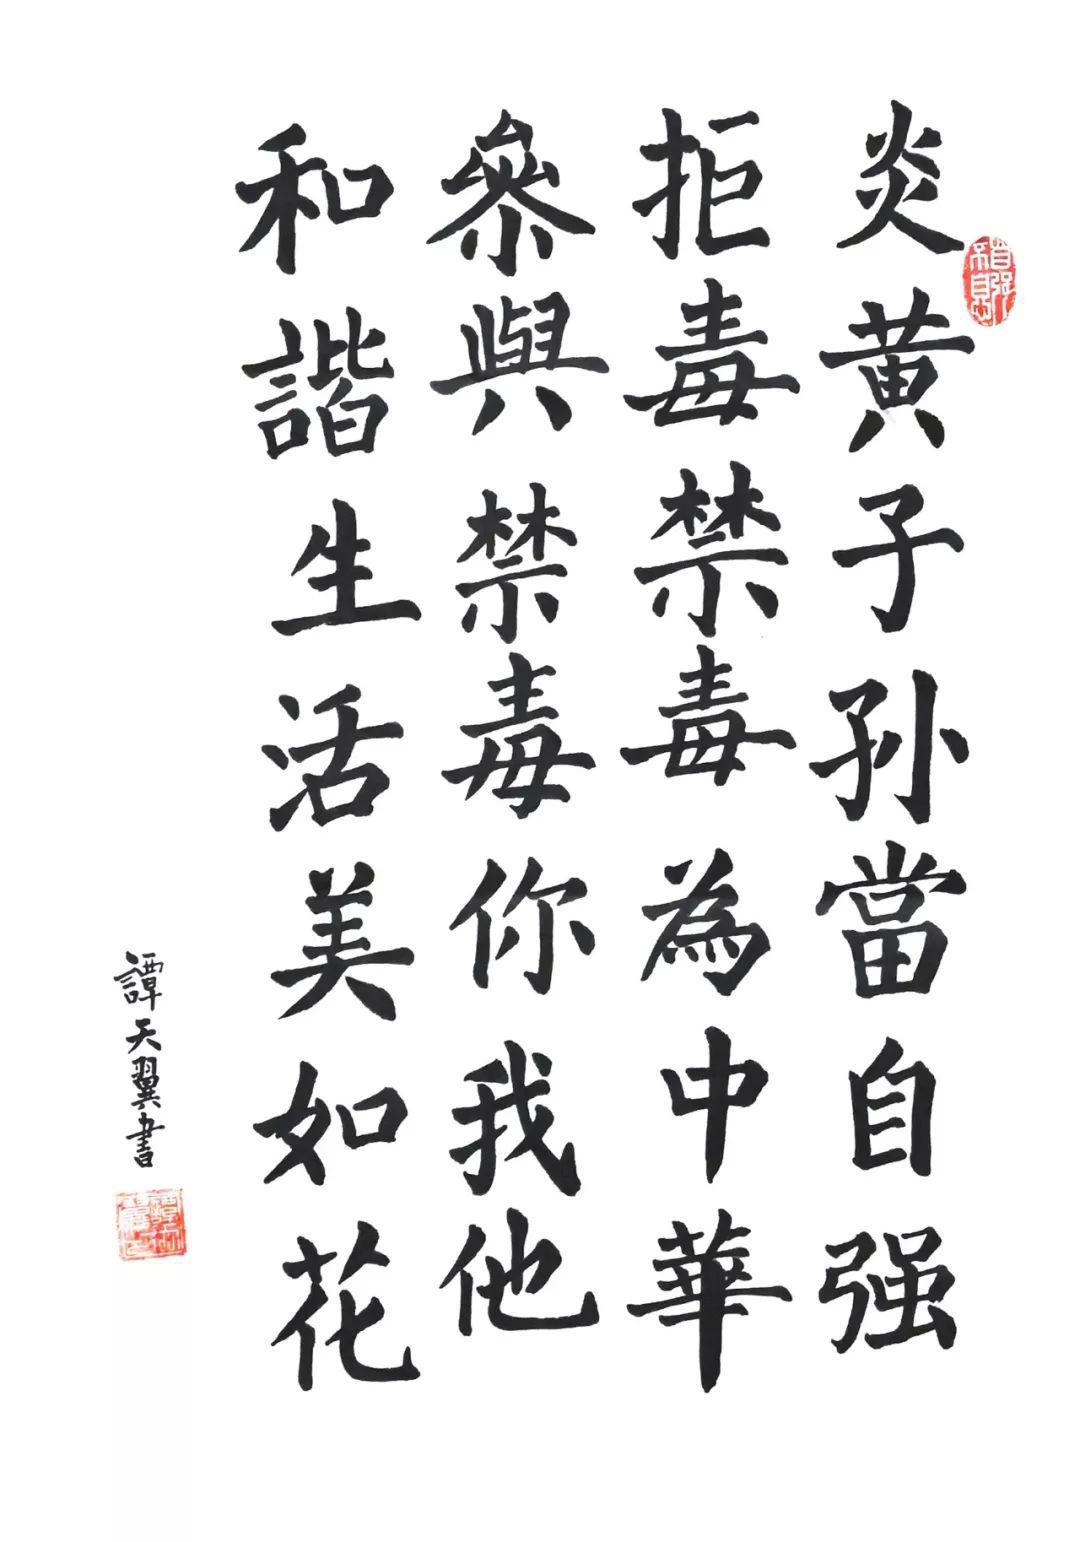 炎黄子孙當自强
拒毒禁毒為中華
叅與禁毒你我他
和諧生活美如花
譚天翼書